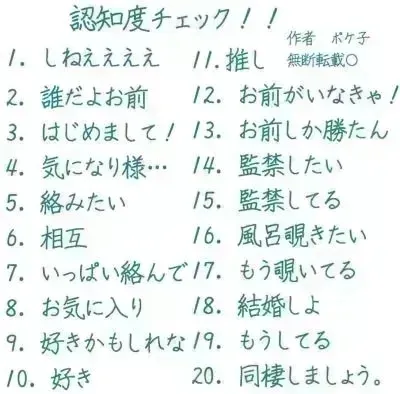 認知度チェック!!
作者 ポケ子
無断転載〇
1. しねええええ
2. 誰だよお前
3. はじめまして!
4. 気になり様…
5. 絡みたい
6. 相互
7. いっぱい絡んで
8. お気に入り
9. 好きかもしれな
10. 好き
11. 推し
12. お前がいなきゃ!
13. お前しか勝たん
14. 監禁したい
15. 監禁してる
16. 風呂覗きたい
17. もう覗いてる
18. 結婚しよ
19. もうしてる
20. 同棲しましょう。